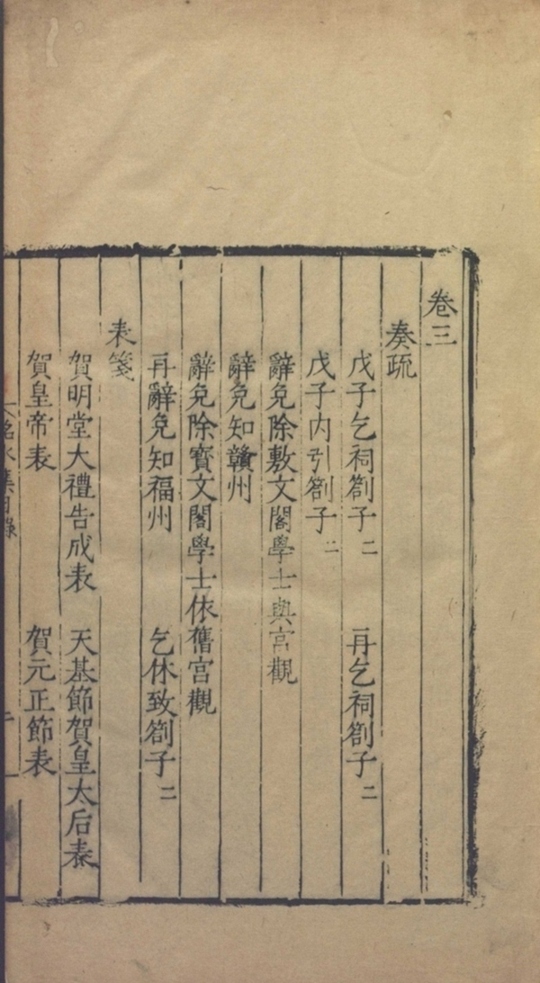 卷三
奏疏
戊子乞祠劄子二 再乞祠劄子二
戊子内引劄子二
辭免除敷文閣學士與宮觀
辭免知贛州
辭免除寶文閣學士依舊宮觀
再辭免知福州 乞休致劄子二
表箋
賀明堂大禮告成表 天基節賀皇太后表
賀皇帝表 賀元正節表